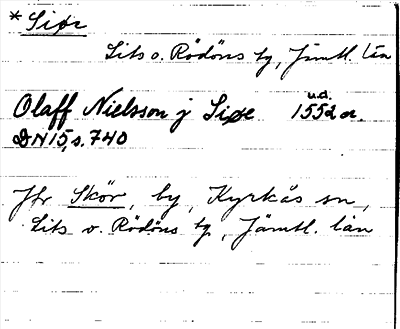 *Siøe
Lits o. Rödöns tg, Jämtl. län
u.d.
Olaff Nielsson j Siøe 1552 a.
DN15, s. 740
Jfr Skör, by, Kyrkås sn,
Lits o. Rödöns tg, Jämtl. län